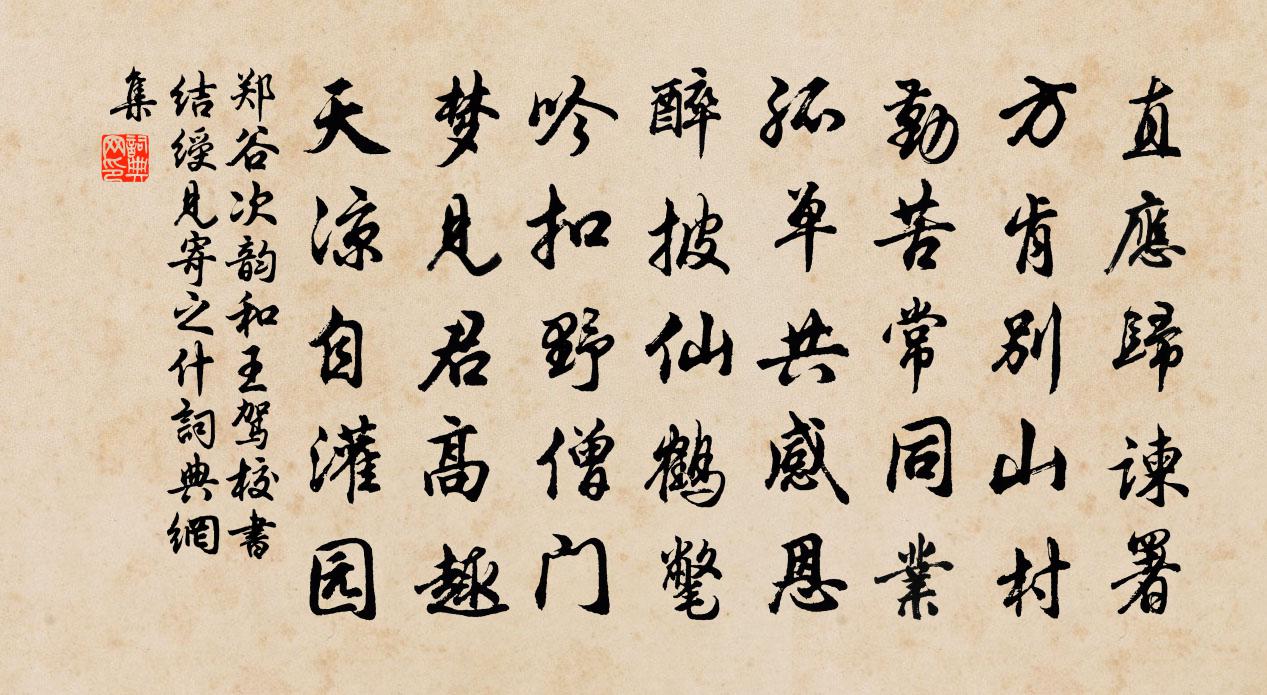 直應歸諫署
方肯別山村
勤苦常同業
孤单共感恩
醉披仙鹤氅
吟扣野僧门
梦見君高趣
天凉自灌园
郑谷次韵和王驾校書
结綬見寄之什詞典網
集
詞典
网印